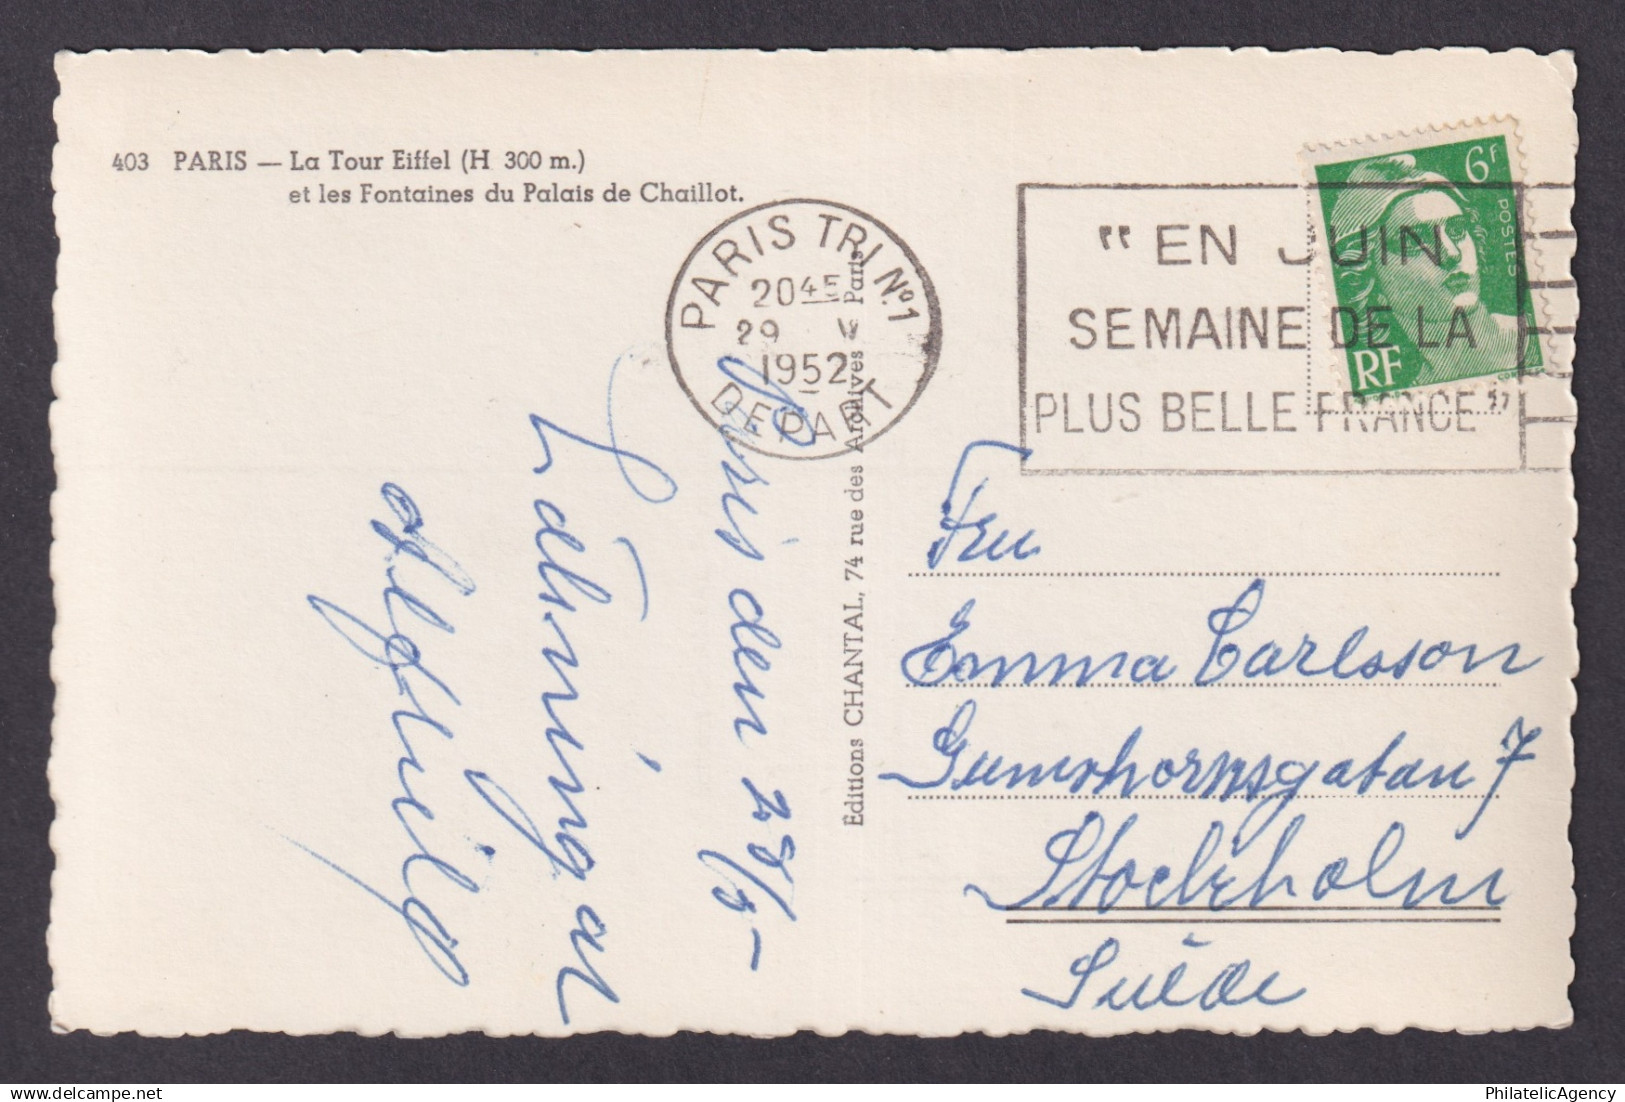 403 PARIS — La Tour Eiffel (H 300 m.)
et les Fontaines du Palais de Chaillot.
PARIS TRI Nº1
20 45
29 V
1952
DEPART
" EN JUIN
SEMAINE DE LA
PLUS BELLE FRANCE "
6F
POSTES
RF
Editions CHANTAL, 74 rue des Archives Paris
Paris den 29/5-
Hälsningar
Fru
Emma Carlsson
Gumshornsgatan 7
Stockholm
Suède
PhilatelicAgency